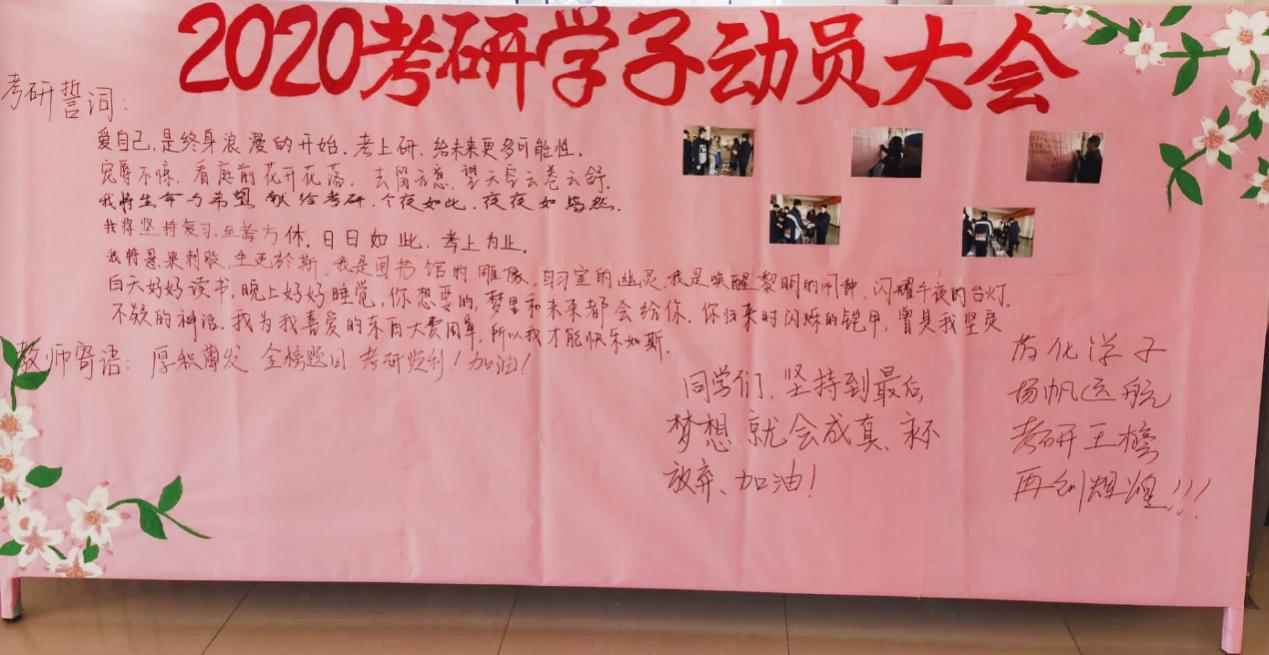 2020考研学子动员大会
考研誓词：
爱自己，是终身浪漫的开始。考上研，给未来更多可能性。
宠辱不惊，看庭前花开花落，去留无意，望天空云卷云舒。
我将生命与希望献给考研，今夜如此，夜夜如当然。
我将坚持复习，至善方休。日日如此，考上为止。
我将悬梁刺股，生死於斯，我是图书馆的雕像，自习室的幽灵，我是唤醒黎明的闹钟，闪耀午夜的台灯，
白天好好读书，晚上好好睡觉，你想要的，梦里和未来都会给你。你归来时闪烁的铠甲，曾是我坚贞
不疑的神话。我为我喜爱的东西大费周章，所以我才能快乐如斯。
教师寄语：厚积薄发 金榜题目 考研胜利！加油！
同学们，坚持到最后，
梦想就会成真、永不
放弃、加油！
学子
扬帆远航
考研王榜
再创辉煌!!!